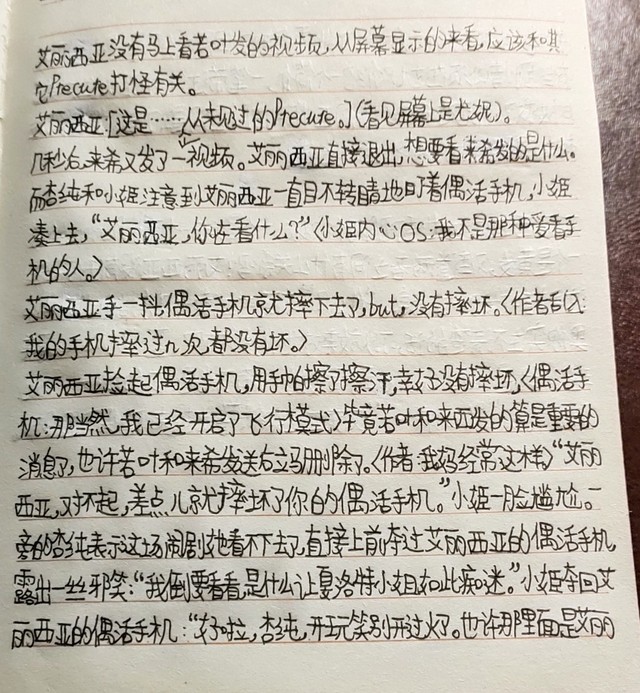 艾丽西亚没有马上看若叶发的视频，从屏幕显示的来看，应该和其
它Precute打怪有关。
艾丽西亚：［这是……从未见过的Precute。］（看见屏幕上是尤妮）。
几秒后，来希又发了一视频。艾丽西亚直接退出，想要看来希发的是什么。
而杏纯和小姬注意到艾丽西亚一直目不转睛地盯着偶活手机，小姬
凑上去，“艾丽西亚，你在看什么？”〈小姬内心OS：我不是那种爱看手
机的人。〉
艾丽西亚手一抖，偶活手机就摔下去了，but，没有摔坏。〈作者乱入：
我的手机摔过n次，都没有坏。〉
艾丽西亚捡起偶活手机，用手帕擦了擦汗，幸好没有摔坏，〈偶活手
机：那当然，我已经开启了飞行模式〉毕竟若叶和来西发的算是重要的
消息了，也许若叶和来希发送后立马删除了。〈作者：我妈经常这样〉“艾丽
西亚，对不起，差点儿就摔坏了你的偶活手机。”小姬一脸尴尬。一
旁的杏纯表示这场闹剧她看不下去了，直接上前夺过艾丽西亚的偶活手机，
露出一丝邪笑：“我倒要看看，是什么让夏洛特小姐如此痴迷。”小姬夺回艾
丽西亚的偶活手机：“好啦，杏纯，开玩笑别开过火了。也许那里面是艾丽